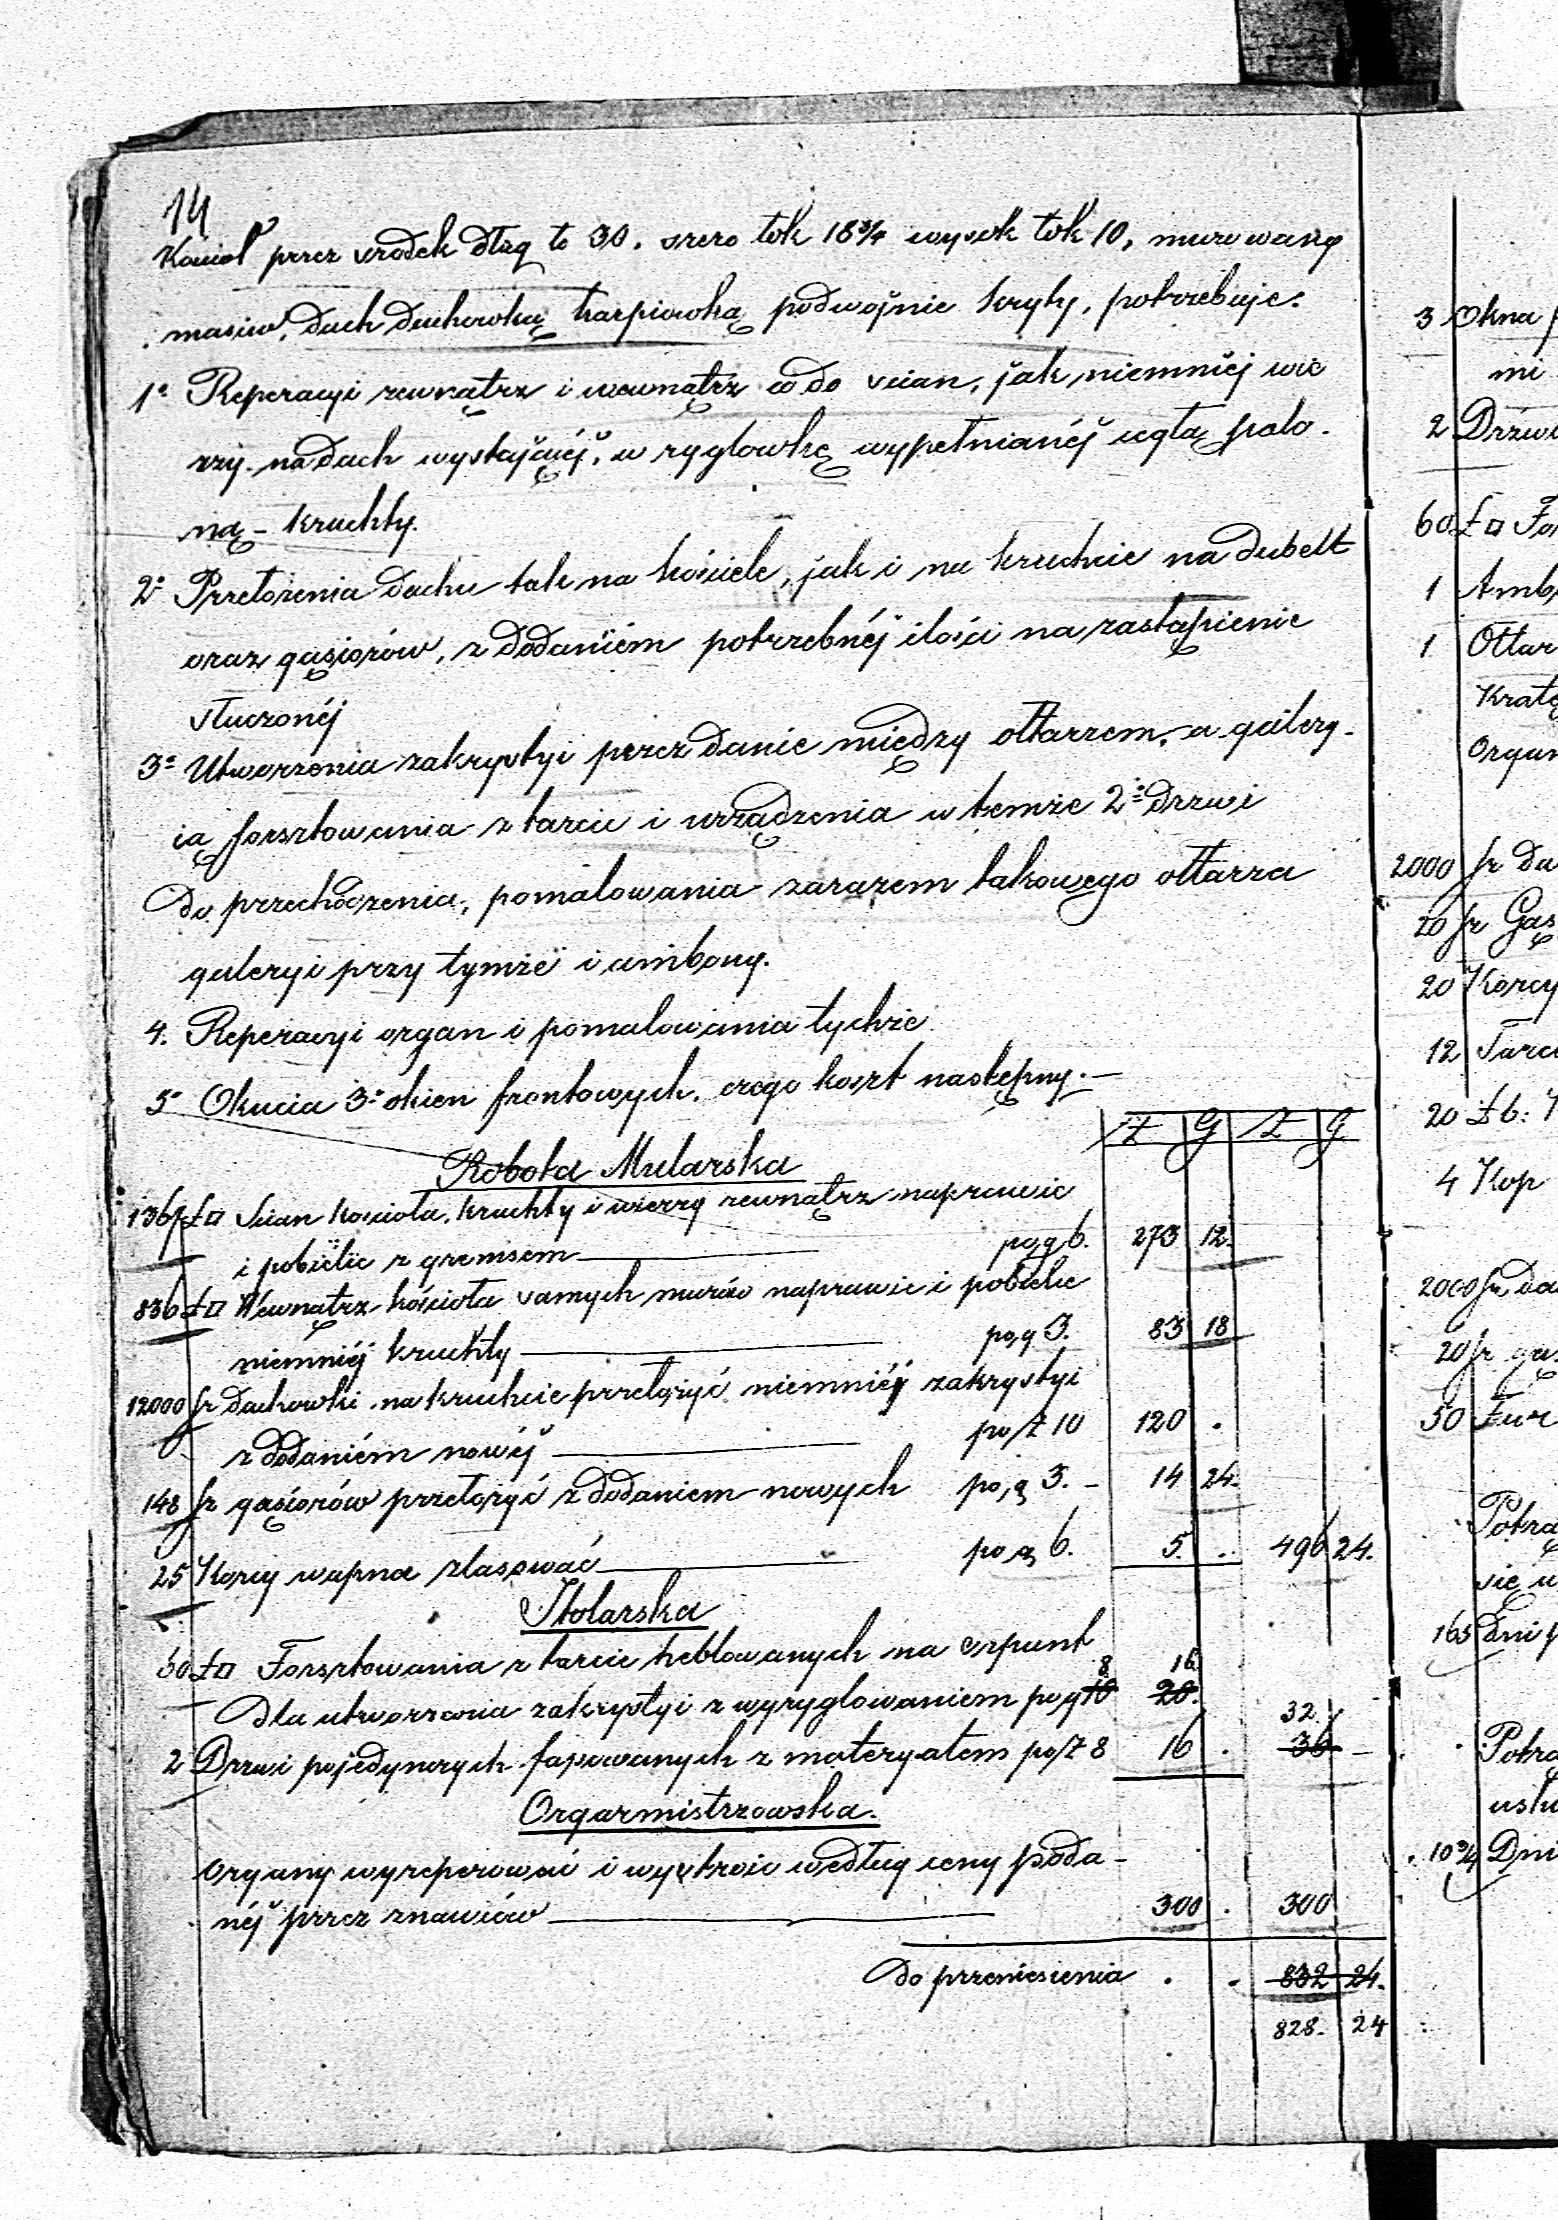 14
Kościoł przez srodek dług to 30. szero łok 18¾ wysok łok 10, murowany
masiw, dach dachowką karpiowką podwojnie kryty, potrzebuje.
1º Reperacyi zewnątrz i wewnątrz co do scian, jak niemniéj wie
rzy na dach wystającéj, w ryglowkę wypełnianéj cegłą palo-
ną - kruchty.
2º Przełożenia dachu tak na kościele, jak i na kruchcie na dubelt
oraz gąsiorów, z dodaniém potrzebnéj ilości na zastąpienie
stłuczonéj
3º Utworzenia zakrystyi przez danie między ołtarzem, a galery-
ią forsztowania z tarcic i urządzenia w temże 2º drzwi
do przechodzenia, pomalowania zarazem takowego ołtarza
galeryi przy tymże i ambony.
4. Reperacyi organ i pomalowania tychże
5º Okucia 3º okien frontowych, czego koszt następny.—
Z G Z G
Robota Mularska
1367 Ł□ Scian kościoła, kruchty i wierzy zewnątrz naprawic
i pobielic z gremsem — po g 6. 273 12.
836 Ł□ Wewnątrz kościoła samych murów naprawic i pobielic
niemniéj kruchty — po g 3. 83 18
12000 sz dachowki na kruchcie przełożyć niemniéj zakrystyi
z dodaniém nowéj — po Z 10 120 .
148 sz gąsiorów przełożyć z dodaniem nowych po g 3. - 14 24.
25 Korcy wapna zlasować — po g 6. 5. . 496 24.
Stolarska
60 Ł□ Forsztowania z tarcic heblowanych na szpunt
8 16.
dla utworzenia zakrystyi z wyryglowaniem po g 10 20.
32.
2 Drzwi pojedynczych fasowanych z materyałem po Z 8 16 . 36 -
Organmistrzowska.
Organy wyreperować i wystroic według ceny poda-
néj przez znawców — 300 . 300
Do przeniesienia . . 832 24.
828. 24
3 Okna
mi
2 Drzwi
60 Ł□
1
1 Ołtar
Organ
2000 sz da
20 sz Gąs
20 Korcy
12 Tarci
20
4 Kop
2000 sz da
20 sz gą
50
165 Dni
10¾ Dni